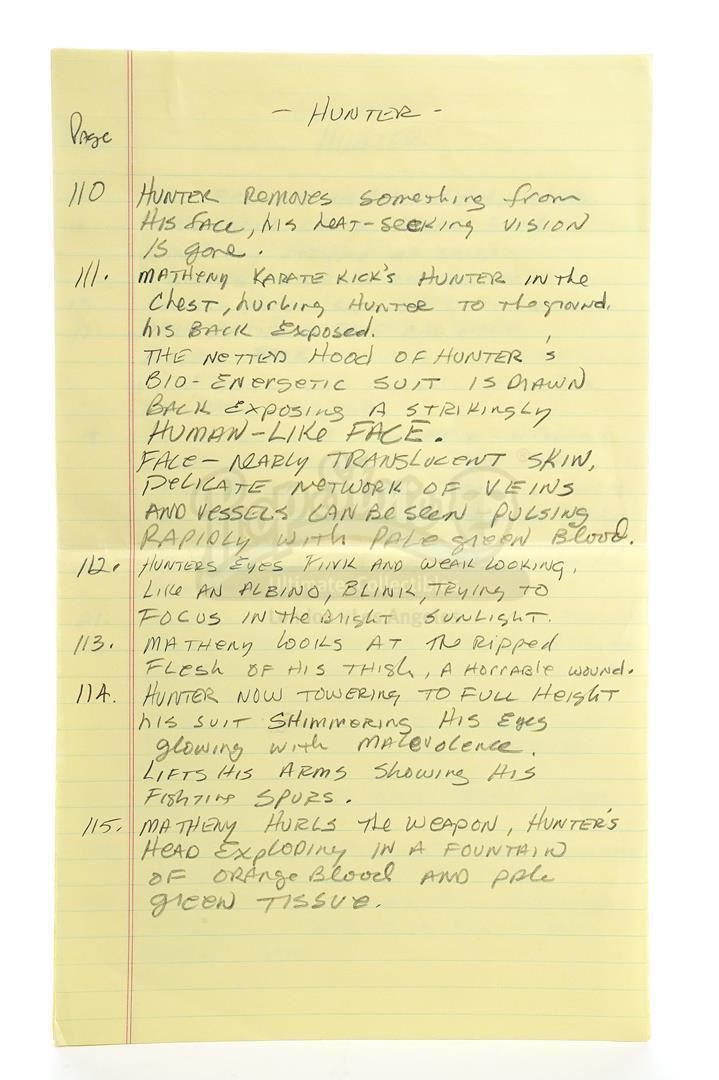 - HUNTER -
Page
110 HUNTER REMOVES something from
HIS FACE, his heat-seeking VISION
IS gone.
111. MATHENY KARATE KICK'S HUNTER IN the
CHEST, hurling HUNTER TO the ground.
his BACK Exposed.
THE NETTED HOOD OF HUNTER'S
BIO-ENERGETIC SUIT IS DRAWN
BACK EXPOSING A STRIKINGLY
HUMAN-LIKE FACE.
FACE - NEARLY TRANSLUCENT SKIN,
DELICATE NETWORK OF VEINS
AND VESSELS CAN BE SEEN PULSING
RAPIDLY WITH PALE green Blood.
112. HUNTERS EYES PINK AND WEAK LOOKING,
LIKE AN ALBINO, BLINK, TRYING TO
FOCUS IN the BRIGHT SUNLIGHT.
113. MATHENY LOOKS AT THE RIPPED
FLESH OF HIS THIGH, A HORRABLE WOUND.
114. HUNTER NOW TOWERING TO FULL HEIGHT
his SUIT SHIMMERING HIS EYES
glowing with MALEVOLENCE.
LIFTS HIS ARMS SHOWING HIS
FIGHTING SPURS.
115. MATHENY HURLS THE WEAPON, HUNTER'S
HEAD EXPLODING IN A FOUNTAIN
OF ORANGE Blood AND PALE
green TISSUE.